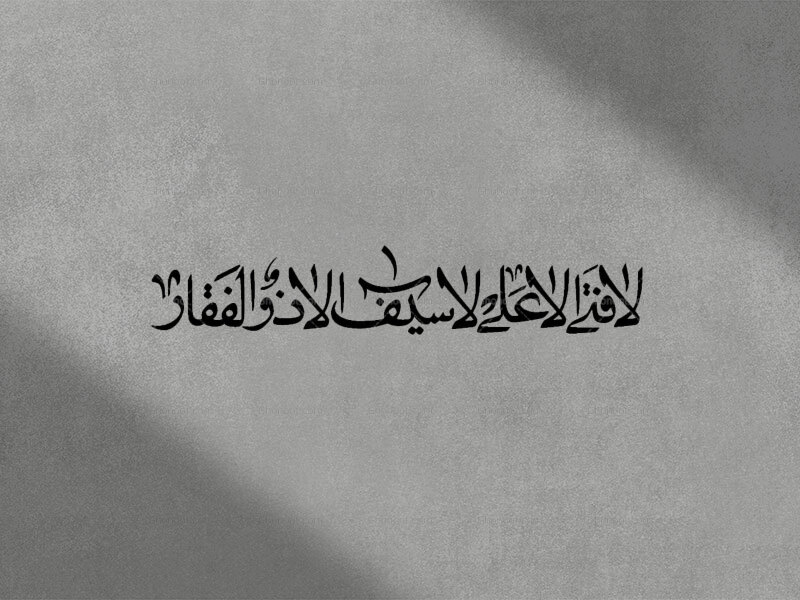 لا فتی الا علی لا سیف الا ذوالفقار